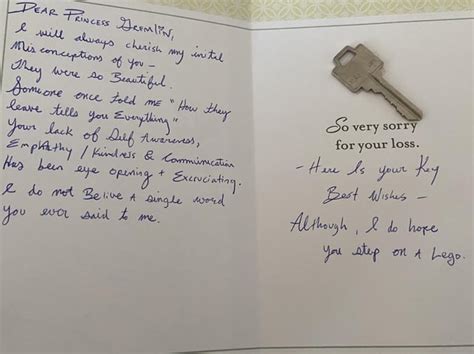 Dear Princess Gremlin,
I will always cherish my inital
misconceptions of you –
They were so Beautiful.
Someone once told me "How they
leave tells you Everything"
Your lack of Self Awareness,
Empathy / Kindness & Communication
Has been eye opening + Excruciating.
I do not Belive a single word
you ever said to me.
So very sorry
for your loss.
- Here Is your Key
Best Wishes -
Although, I do hope
you step on a Lego.